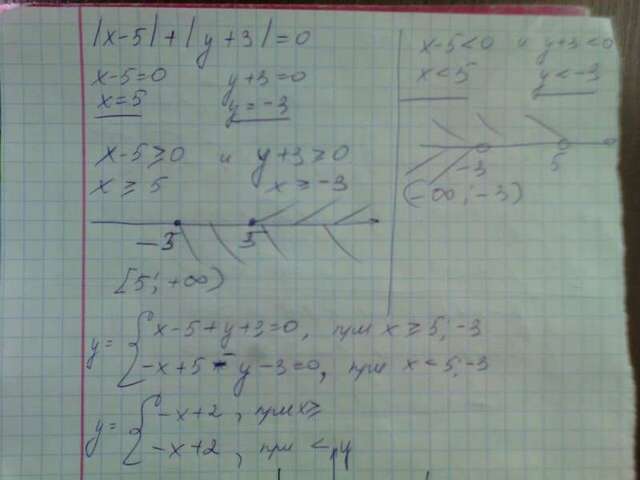 |x-5|+|y+3|=0
x-5=0 y+3=0
x=5 y=-3
x-5≥0 и y+3≥0
x≥5 x≥-3
-3 5
[5; +∞)
x-5<0 и y+3<0
x<5 y<-3
-3 5
(-∞; -3)
y= { x-5+y+3=0, при x≥5;-3
-x+5-y-3=0, при x<5;-3
y= { -x+2, при x≥
-x+2, при <